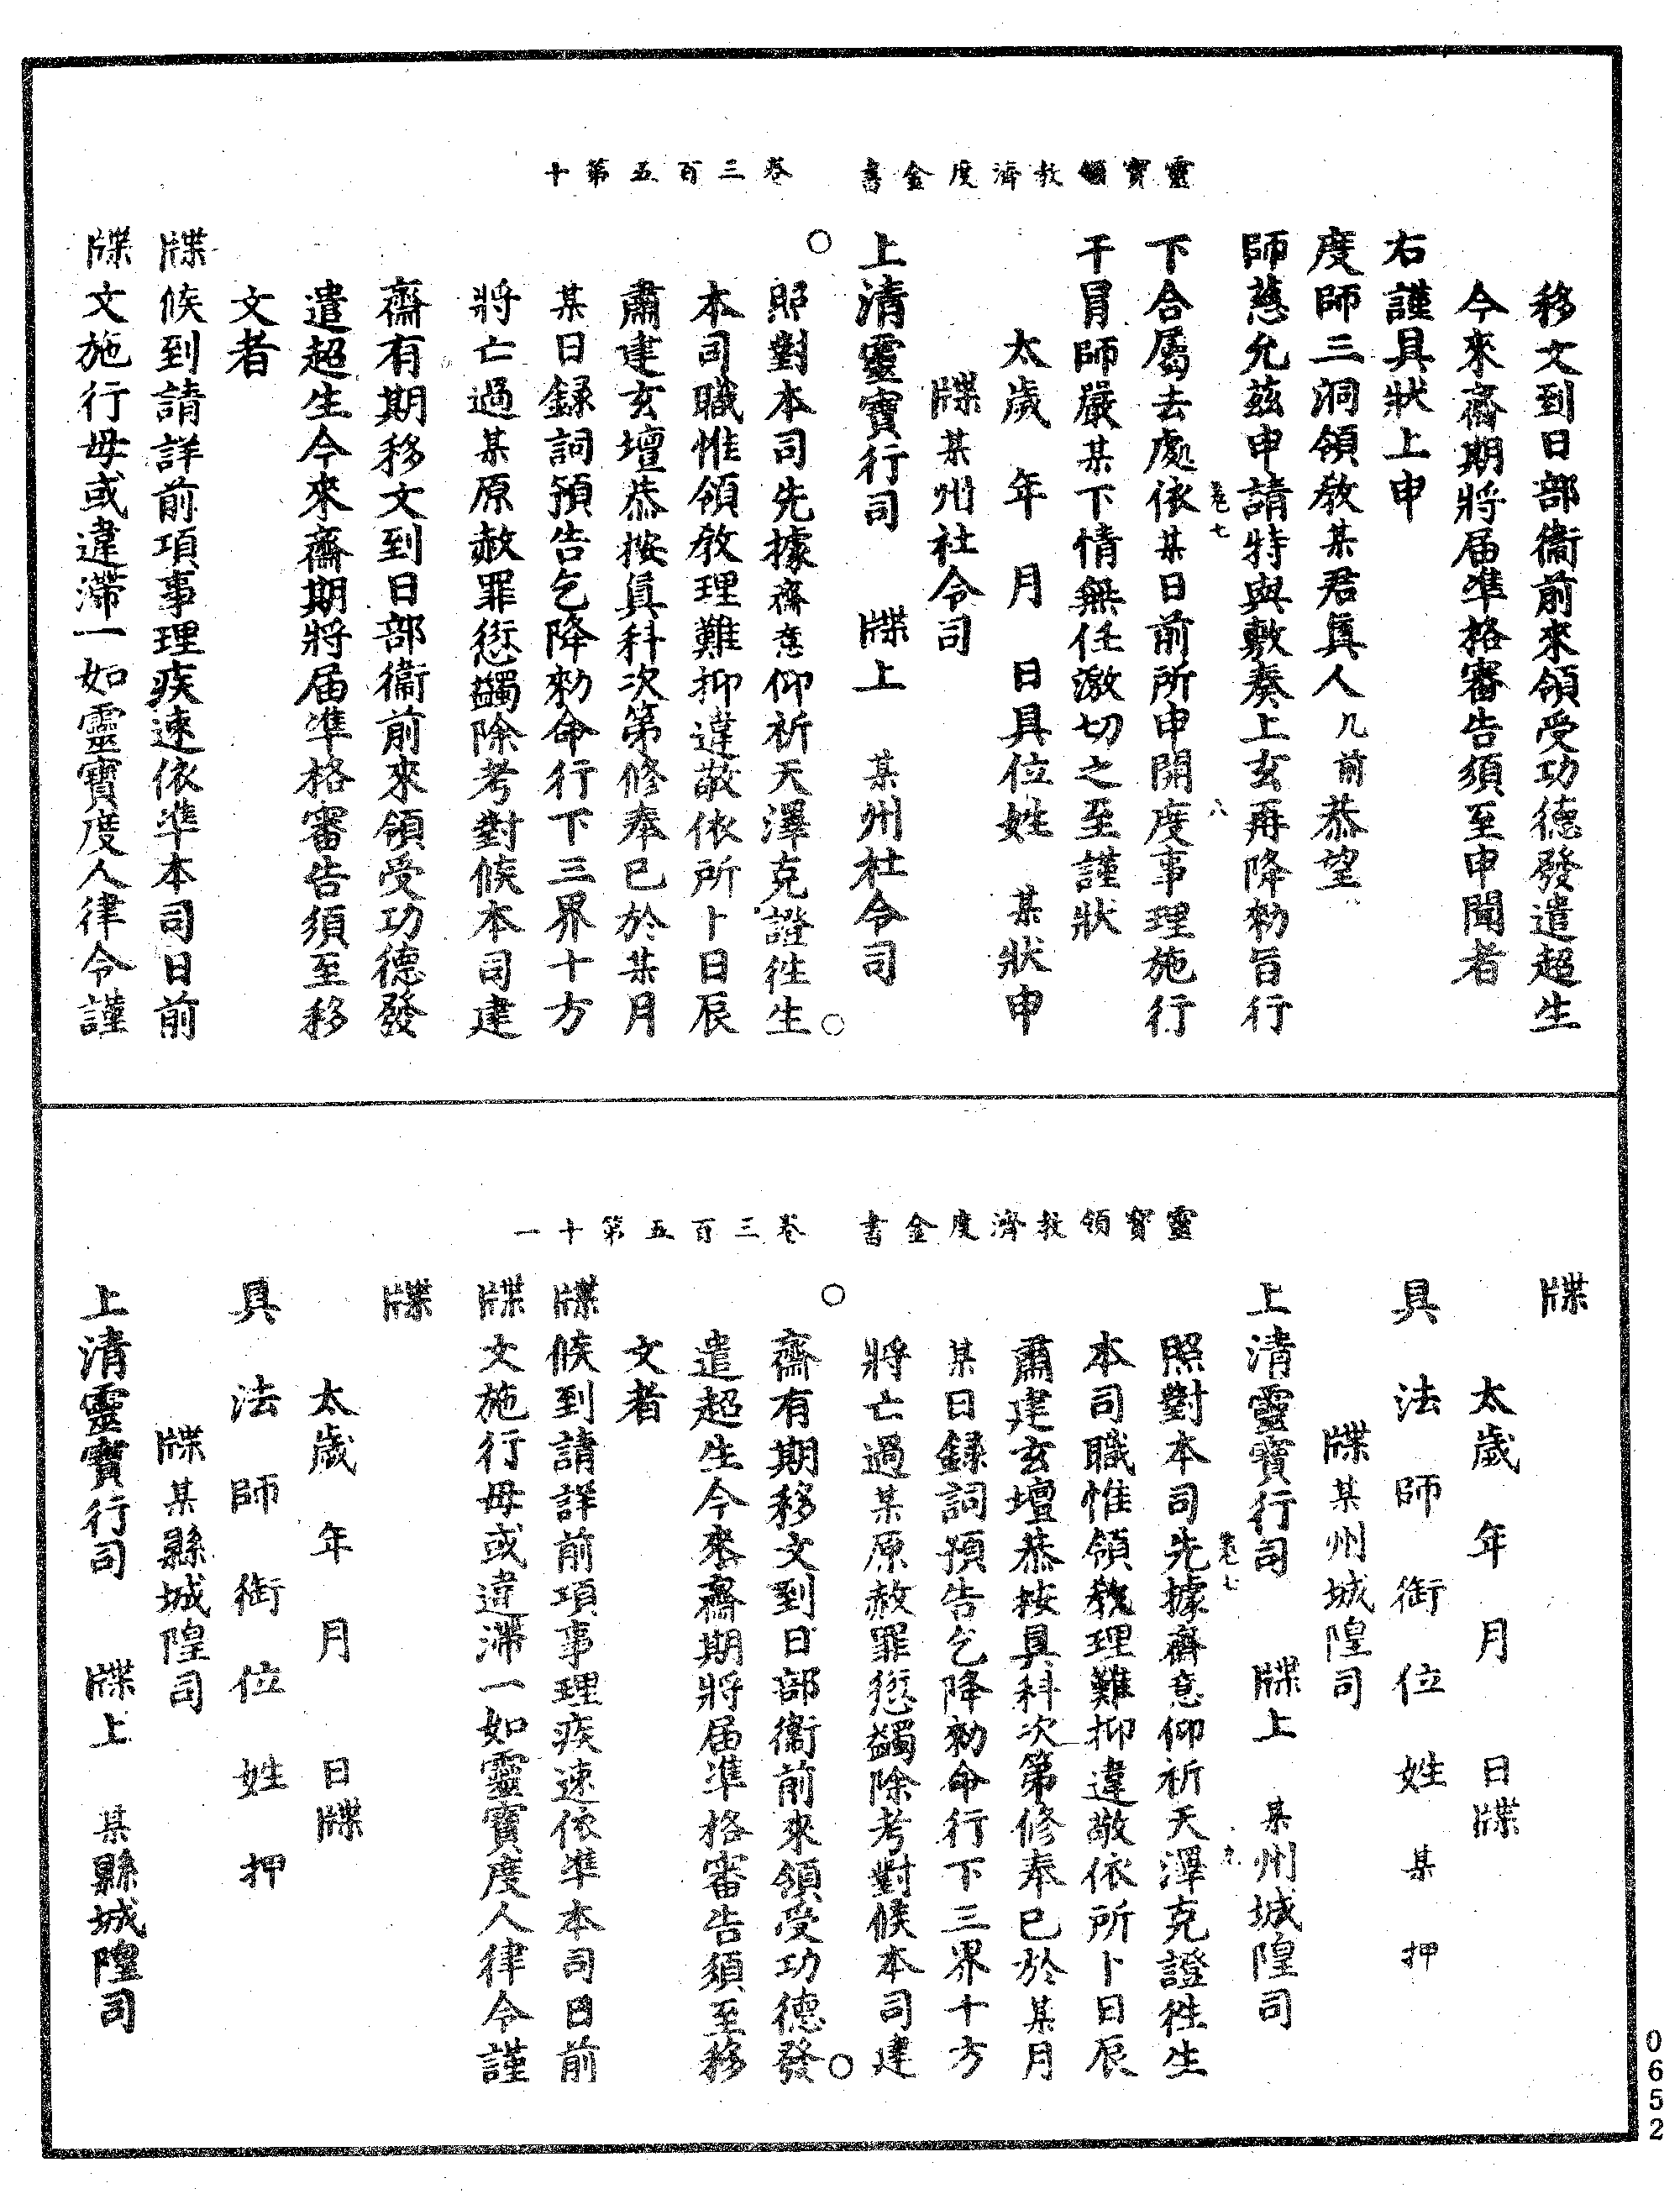 靈寶領教濟度金書　卷三百五第十
移文到日部衛前來領受功德發遣超生
今來齋期將届準格審告須至申聞者
右謹具狀上申
度師三洞領教某君真人几前恭望
師慈允茲申請特與敷奏上玄再降勑旨行
卷七　八
下合屬去處依某日前所申開度事理施行
干冒師嚴某下情無任激切之至謹狀
太歲　年　月　日具位姓　某狀申
牒某州社令司
上清靈寶行司　牒上　某州社令司
照對本司先據齋意仰祈天澤克證徃生
本司職惟領教理難抑違敬依所卜日辰
肅建玄壇恭按真科次第修奉已於某月
某日錄詞預告乞降勑命行下三界十方
將亡過某原赦罪愆蠲除考對候本司建
齋有期移文到日部衛前來領受功德發
遣超生今來齋期將届準格審告須至移
文者
牒候到請詳前項事理疾速依準本司日前
牒文施行毋或違滯一如靈寶度人律令謹
靈寶領教濟度金書　卷三百五第十一
牒
太歲　年　月　日牒
具　法　師　銜　位　姓　某　押
牒某州城隍司
上清靈寶行司　牒上　某州城隍司
卷七　九
照對本司先據齋意仰祈天澤克證徃生
本司職惟領教理難抑違敬依所卜日辰
肅建玄壇恭按真科次第修奉已於某月
某日錄詞預告乞降勑命行下三界十方
將亡過某原赦罪愆蠲除考對候本司建
齋有期移文到日部衛前來領受功德發
遣超生今來齋期將届準格審告須至移
文者
牒候到請詳前項事理疾速依準本司日前
牒文施行毋或違滯一如靈寶度人律令謹
牒
太歲　年　月　日牒
具　法　師　銜　位　姓　押
牒某縣城隍司
上清靈寶行司　牒上　某縣城隍司
0652